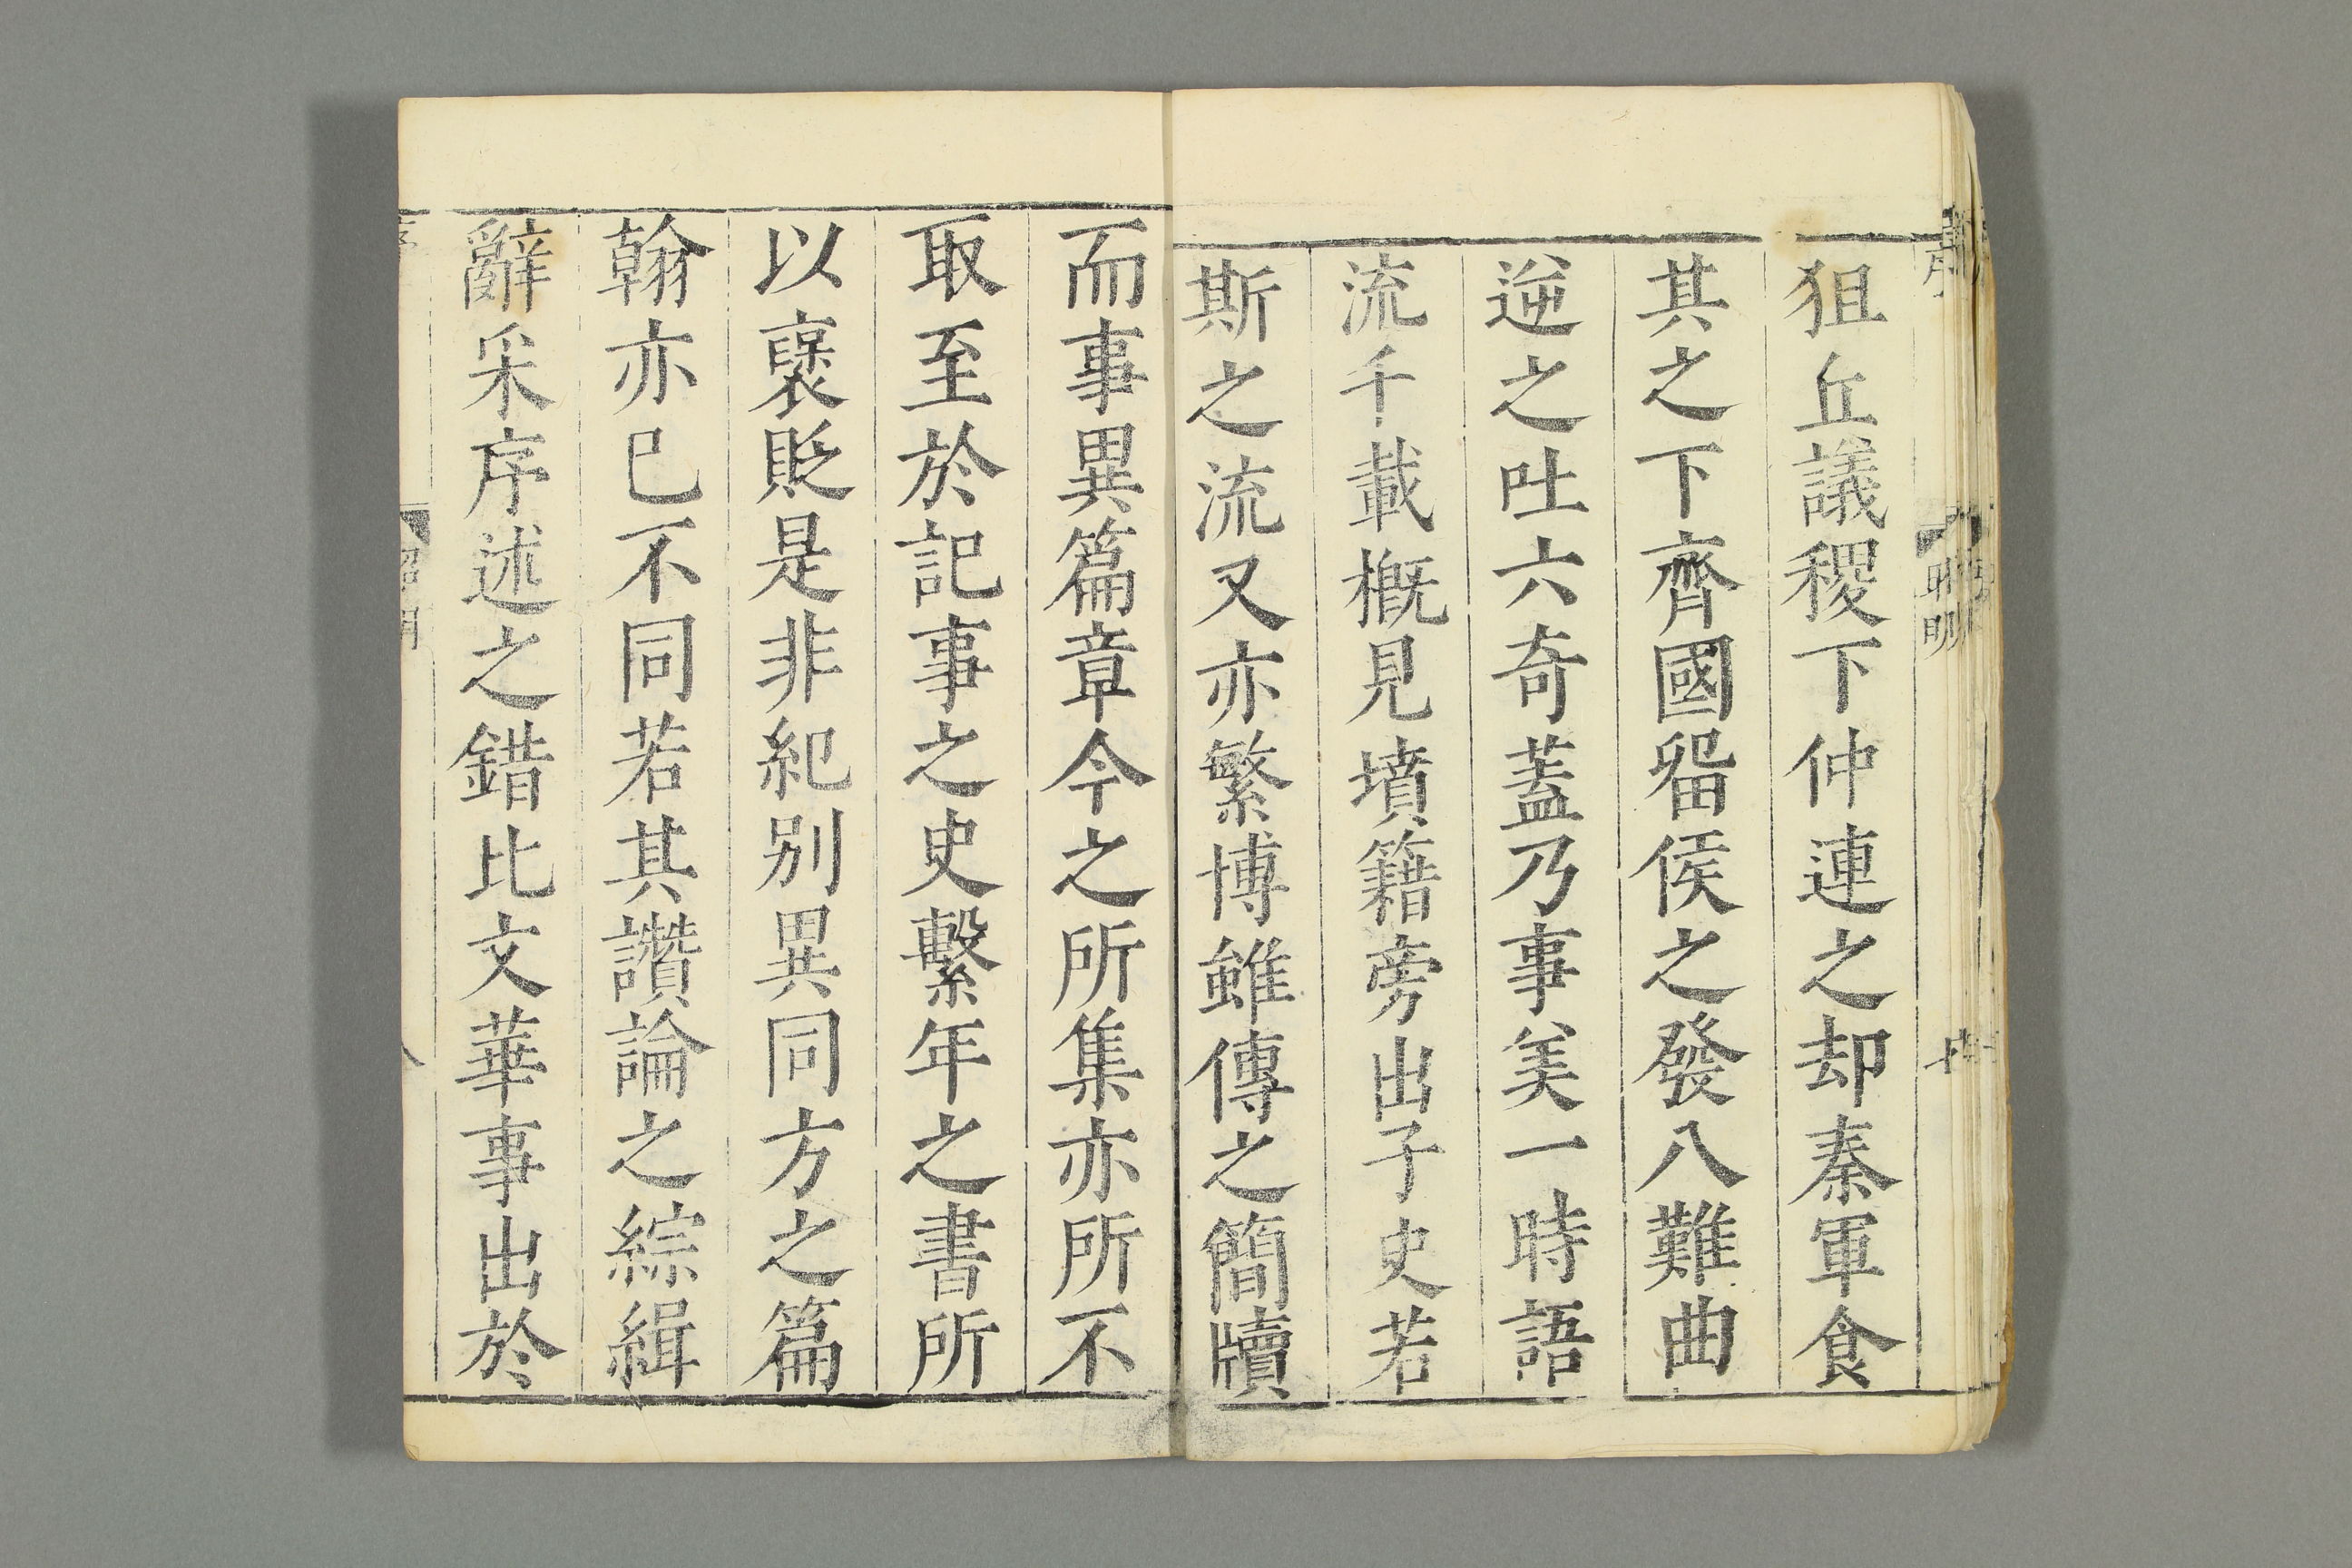 狙丘議稷下仲連之却秦軍食
其之下齊國留侯之發八難曲
逆之吐六奇蓋乃事美一時語
流千載概見墳籍旁出子史若
斯之流又亦繁博雖傳之簡牘
而事異篇章今之所集亦所不
取至於記事之史繫年之書所
以襃貶是非紀別異同方之篇
翰亦已不同若其讚論之綜緝
辭采序述之錯比文華事出於